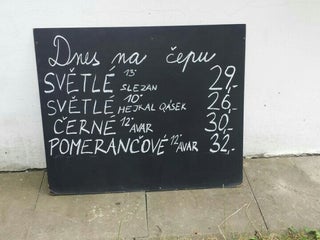 Dnes na čepu
SVĚTLÉ 13° SLEZAN 29,-
SVĚTLÉ 10° HEJKAL QÁSEK 26,-
ČERNÉ 12° AVAR 30,-
POMERANČOVÉ 12° AVAR 32,-